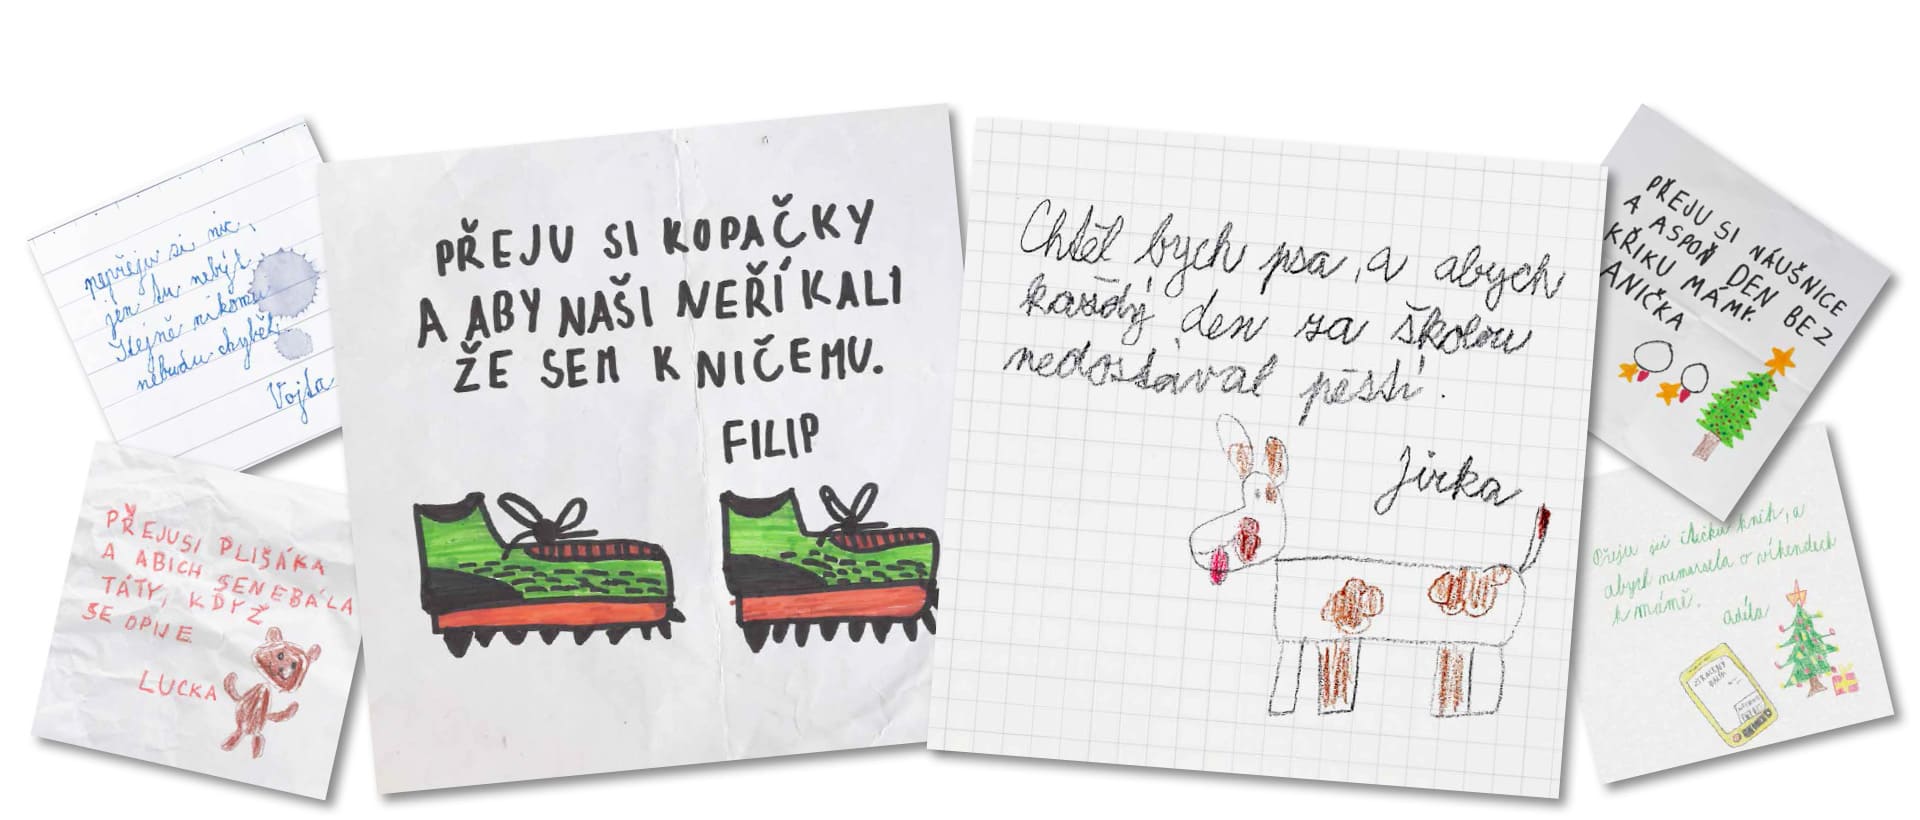 nepřeju si nic,
jen tu nebýt
stejně nikomu
nebudu chybět.
Vojta
PŘEJUSI PLIŠÁKA
A ABICH SENEBÁLA
TÁTY, KDYŽ
SE OPIJE
LUCKA
PŘEJU SI KOPAČKY
A ABY NAŠI NEŘÍKALI
ŽE SEM K NIČEMU.
FILIP
Chtěl bych psa, a abych
každý den za školou
nedostával pěstí.
Jirka
PŘEJU SI NÁUŠNICE
A ASPOŇ DEN BEZ
KŘIKU MÁMY.
ANIČKA
Přeju si čtečku knih, a
abych nemusela o víkendech
k mámě.
Adéla